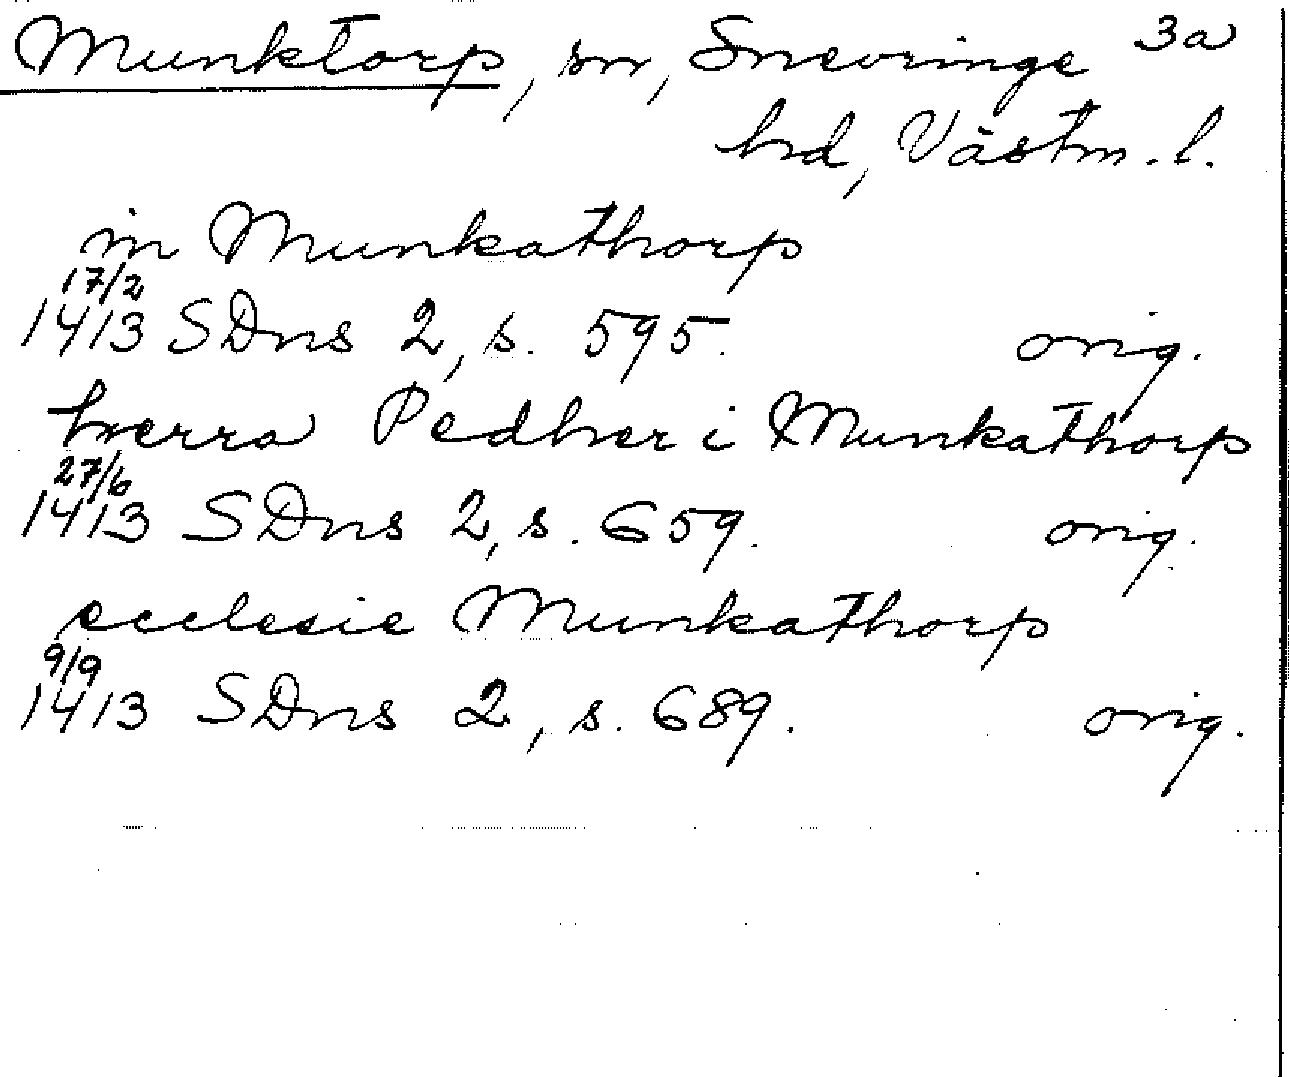 Munktorp, sn, Snevringe 3a
hd, Västm. l.
in Munkathorp
17/2
1413 SDns 2, s. 595. orig.
hærra Pedher i Munkathorp
27/6
1413 SDns 2, s. 659. orig.
ecclesie Munkathorp
9/9
1413 SDns 2, s. 689. orig.